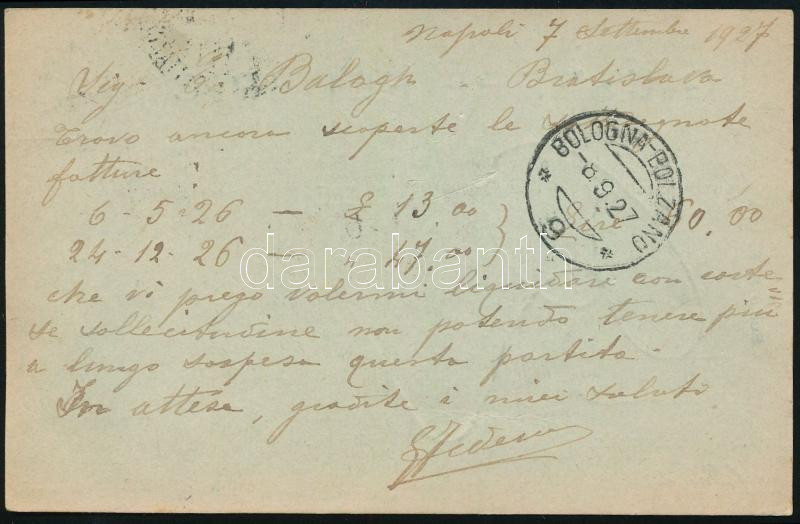 Napoli 7 Settembre 1927
Sig. Balogh - Bratislava
Trovo ancora scoperte le segnate
fatture:
6 - 5 - 26 — £ 13.00
24 - 12 - 26 — " 47.00 } Lire 60.00
che vi prego volermi liquidare con corte-
se sollecitudine non potendo tenere più
a lungo sospesa questa partita.
In attesa, gradite i miei saluti
BOLOGNA-BOLZANO
-8.9.27
darabanth